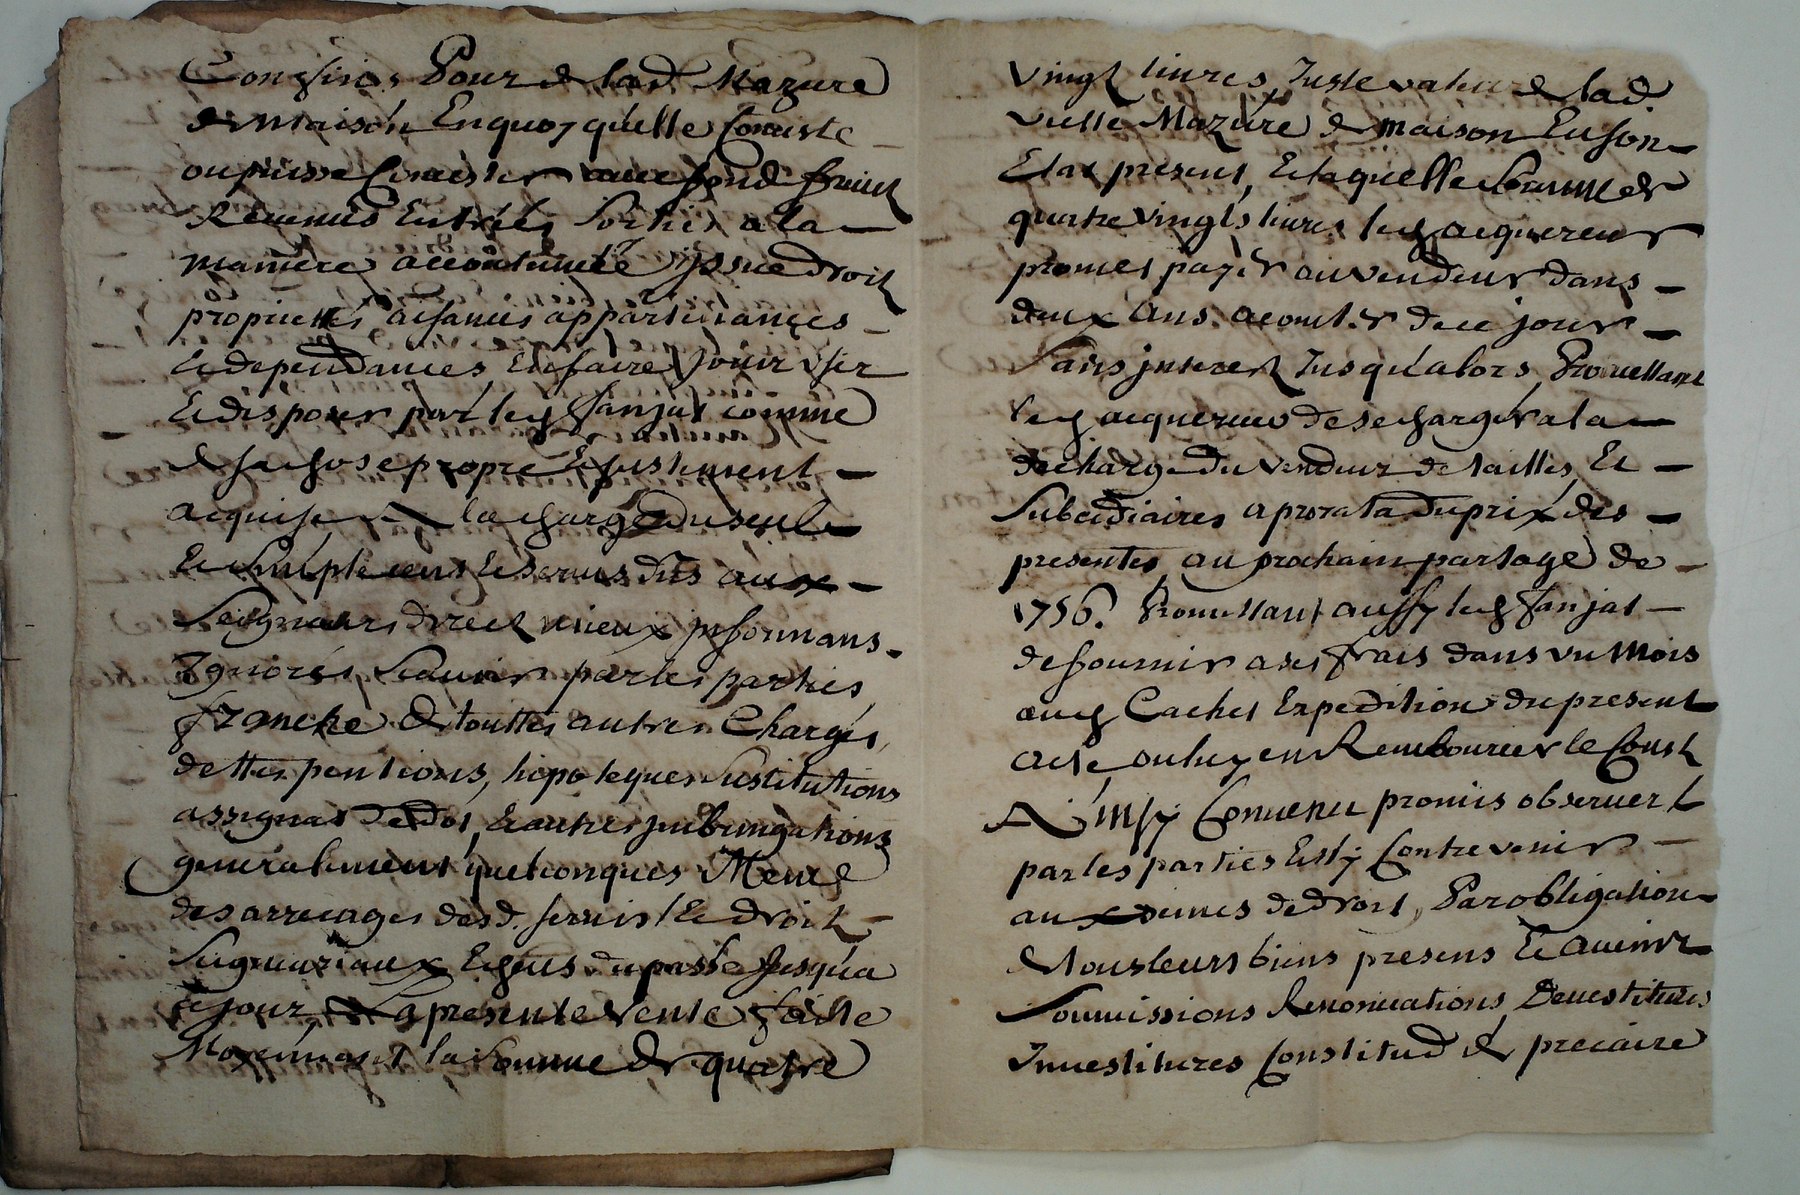 Confins, Pour de lad. Mazure
de maison, Enquoy quelle Consiste
ou puisse Consister avec fond fruict
Revenus Entrées Sorties a la
maniere accoutumée yssue droit
proprietés aisances appartenances
Et dependances En faire Jouir User
Et disposer par led Janjat comme
de sa chose propre Et justement
acquise A la charge du seul
Et Simple cens Et servis dus aux
Seigneurs direct mieux Informans
Ignorés Scavoir par les parties
franche de touttes autres Charges
dettes pentions, hipoteques Sustitutions
assignat de dot, Et autres
generalement quelconques Meme
des arrerages desd. servis Et droit
Seigneuriaux Echeus du passé Jusqua
ce jour, La presente Vente faitte
Moyennant la Somme de quatre
Vingt livres, Juste valeur de lad.
vielle Mazure de maison En son
Etat present, Et laquelle Somme de
quatre vingts livres led acquereur
promet payer au vendeur dans
deux ans. a conter de ce jour
Sans jnterest Jusqu'alors, Promettant
led acquereur de se charger a la
decharge du vendeur de tailles, Et
Subcidiaires a prorata du prix des
presentes au prochain partage de
1756. Promettant aussy led Janjat
de fournir a ses frais dans un mois
aud Cachet Expedition du present
acte, ou luy en Rembourcer le Coust
Ainsy Convenu promis observer
par les parties Et ny Contrevenir
aux peines de droit, Par obligation
de tous leurs biens presens Et avenir
Soumissions Renonciations, Devestitures
Investitures Constitud de precaire